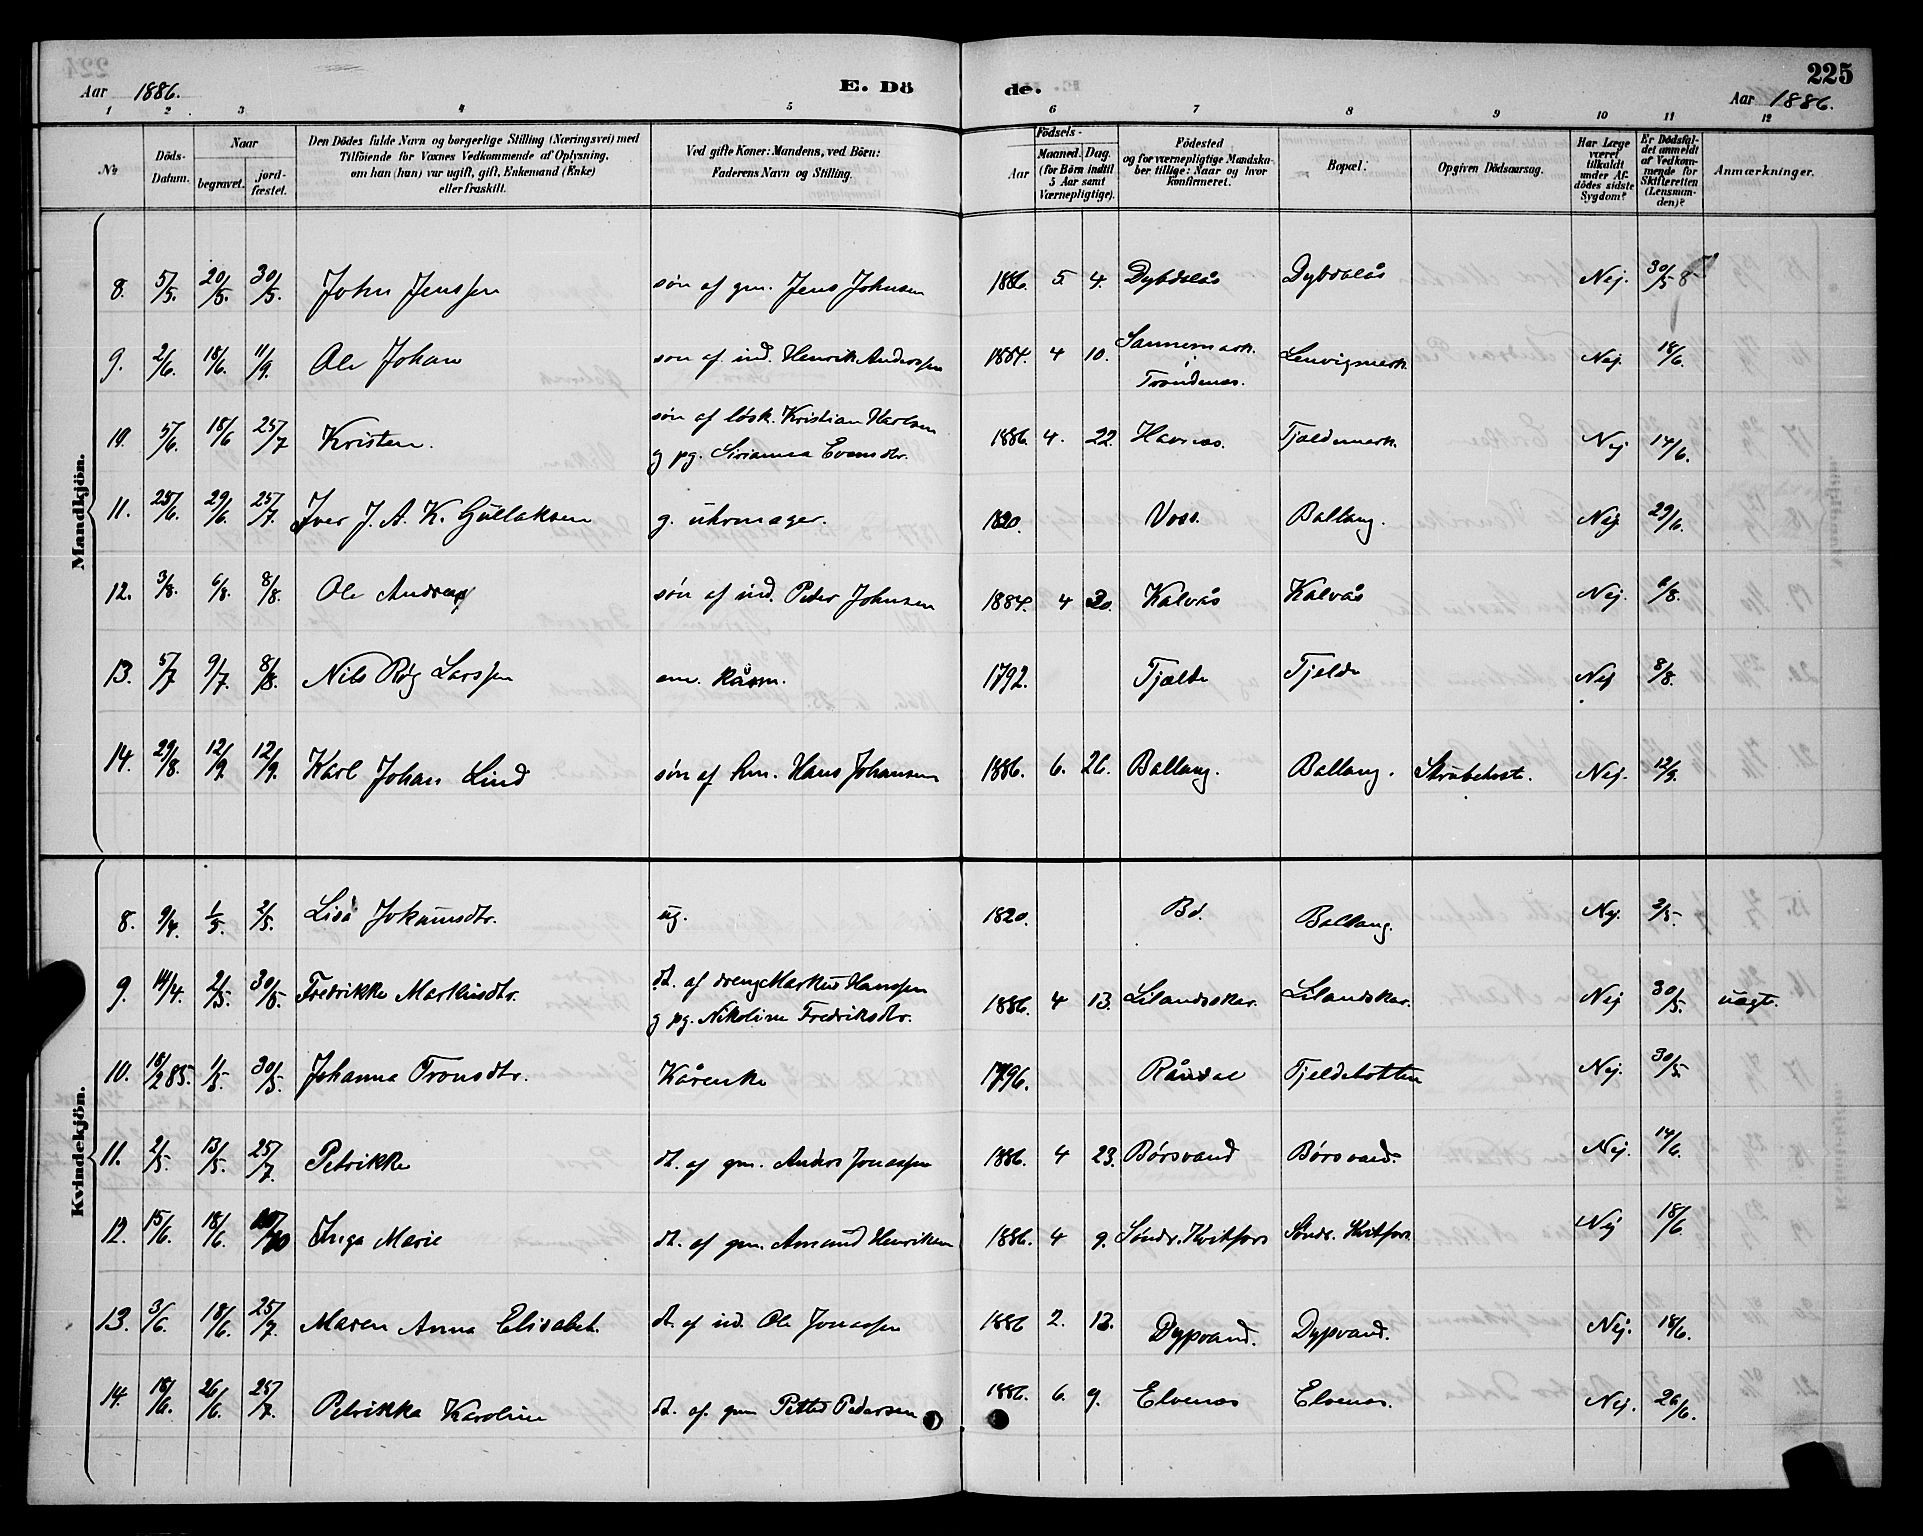 224
225
Aar 1886.
E. Dö de.
Aar 1886.
1 2 3 4 5 6 7 8 9 10 11 12
No
Döds-Datum.
Naar
begravet.
jord-fæstet.
Den Dödes fulde Navn og borgerlige Stilling (Næringsvei) med
Tilföiende for Voxnes Vedkommende af Oplysning,
om han (hun) var ugift, gift, Enkemand (Enke)
eller fraskilt.
Ved gifte Koner: Mandens, ved Börn:
Faderens Navn og Stilling.
Födsels-
Aar
Maaned. Dag.
(for Börn indtil
5 Aar samt
Værnepligtige).
Födested
og for værnepligtige Mandska-
ber tillige: Naar og hvor
konfirmeret.
Bopæl:
Opgiven Dödsaarsag.
Har Læge
været
tilkaldt
under Af-
dödes sidste
Sygdom?
Er Dödsfal-
det anmeldt
af Vedkom-
mende for
Skifteretten
(Lensman-
den)?
Anmærkninger.
Mandkjön.
8. 5/5. 20/5. 30/5. John Jenssen søn af gm. Jens Johnsen 1886. 5 4. Dybdalås Dybdalås Nej. 30/5
9. 2/6. 18/6. 11/9. Ole Johan søn af ind. Henrik Anderssen 1884. 4 10. Sannemark i Trondenes. Lenvigmark. Nej. 18/6.
10. 5/6. 18/6 25/7 Kristen. søn af løsk. Kristian Karlsen
g pg. Sirianna Evensdtr. 1886. 4. 22. Havnes. Tjeldemark. Nej 14/6.
11. 25/6. 29/6. 25/7. Iver J. A. K. Gullaksen g. uhrmager. 1820. Voss. Ballang. Nej. 29/6.
12. 3/8. 6/8. 8/8. Ole Andreas søn af ind. Peder Johnsen 1884. 4 30. Kalvås Kalvås Nej. 6/8.
13. 5/7 9/7. 8/8. Nils Røg Larssen em. kårm. 1792. Tjelde Tjelde Nej 8/8.
14. 29/8. 12/9. 12/9. Karl Johan Lind søn af hm. Hans Johansen 1886. 6. 26. Ballang. Ballang. Strubehoste. Nej. 12/9.
Kvindekjön.
8. 9/4. 1/5. 2/5. Lisa Jokumsdtr. ug. 1820. Bd. Ballang. Nej. 2/5.
9. 14/4. 2/5. 30/5. Fredrikke Markusdtr. dt. af dreng Markus Hanssen
g pg. Nikoline Fredriksdtr. 1886. 4 13. Lilandsskar. Lilandskar. Nej 30/5. uægt.
10. 18/2 85. 1/5. 30/5. Johanna Tronsdtr. Kårenke 1796. Råndal Tjeldebotten Nej. 30/5.
11. 2/5. 13/5. 25/7. Petrikke dt. af gm. Anders Jonassen 1886. 4 23. Børsvand Børsvand. Nej. 14/6.
12. 15/6. 18/6. /10 Inga Marie dt. af gm. Amund Henriksen 1886. 4 9. Søndr. Kvitfors Søndr. Kvitfors. Nej 18/6.
13. 3/6. 18/6. 25/7. Maren Anna Elisabet. dt. af ind. Ole Jonassen 1886 2. 13. Dypvand. Dypvand. Nej. 18/6.
14. 18/6. 26/6. 25/7. Petrikka Karoline dt. af. gm Petter Pedersen 1886. 6. 9. Elvenes Elvenes. Nej. 26/6.